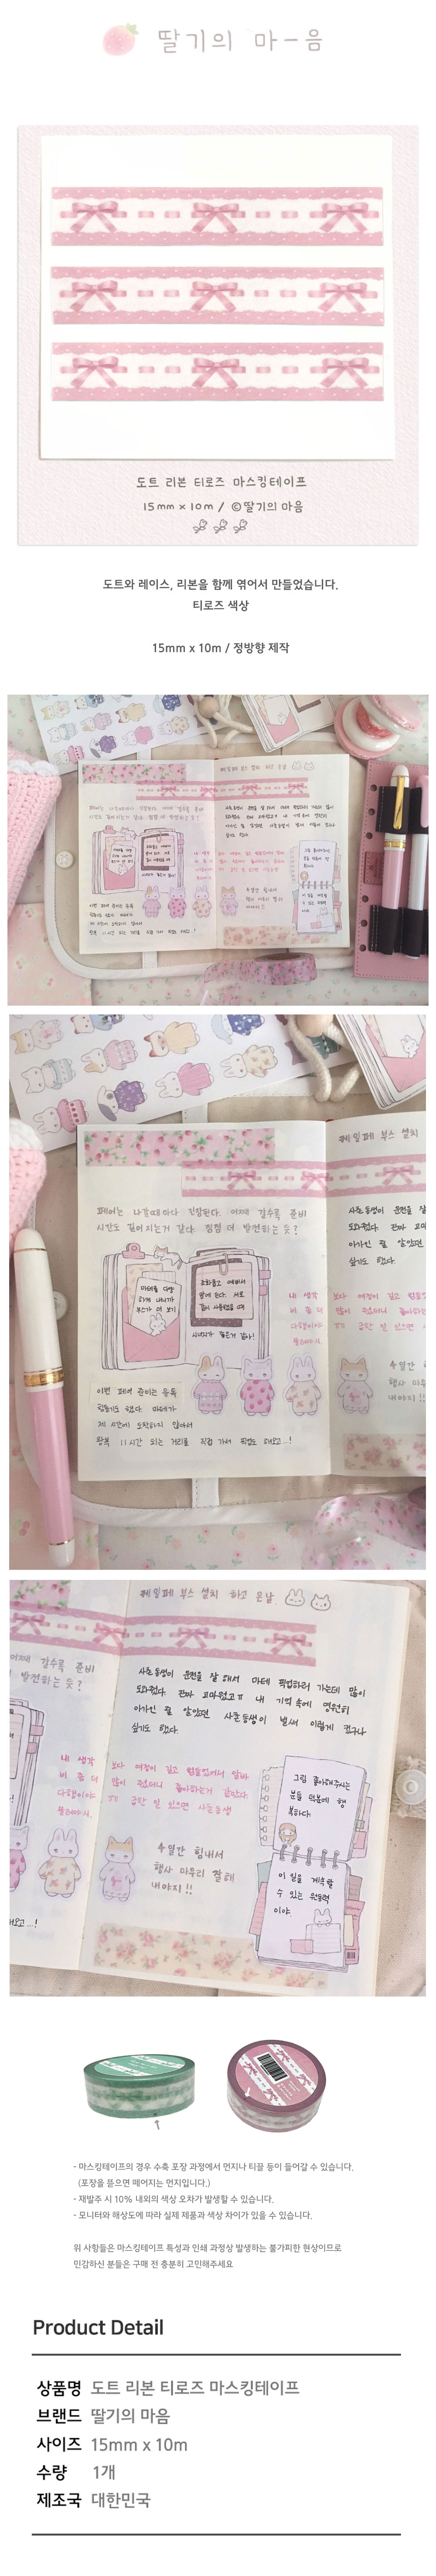 딸기의 마음
도트 리본 티로즈 마스킹테이프
15mm x 10m / ©딸기의 마음
도트와 레이스, 리본을 함께 엮어서 만들었습니다.
티로즈 색상
15mm x 10m / 정방향 제작
페어는 나갈때마다 긴장된다. 어째 갈수록 준비
시간도 길어지는거 같다. 점점 더 발전하는 듯?
이번 페어 준비는 유독
힘들기도 했다. 마테가
제 시간에 도착하지 않아서
왕복 11시간 되는 거리를 직접 가서 픽업도 해오고...!
케일페 부스 설치 하고 온날
사촌동생이 운전을 잘해서 마테 픽업하러 가는데 많이
도와줬다. 진짜 고마웠고ㅠ 내 기억 속에 영원히
아가인 줄 알았던 사촌동생이 벌써 이렇게 컸구나
싶기도 했다.
내 생각보다 여정이 길고 힘들었어서 알바
비 좀 더 많이 줬더니 좋아하는거 같았다.
다행이야ㅠㅠ 급한 일 있으면 사촌동생
불러야지.
4일간 힘내서
행사 마무리 잘해
내야지!!
그림 좋아해주시는
분들 덕분에 행
복하다.
이 일을 계속할
수 있는 원동력
이야.
- 마스킹테이프의 경우 수축 포장 과정에서 먼지나 티끌 등이 들어갈 수 있습니다.
(포장을 뜯으면 떼어지는 먼지입니다.)
- 재발주 시 10% 내외의 색상 오차가 발생할 수 있습니다.
- 모니터와 해상도에 따라 실제 제품과 색상 차이가 있을 수 있습니다.
위 사항들은 마스킹테이프 특성과 인쇄 과정상 발생하는 불가피한 현상이므로
민감하신 분들은 구매 전 충분히 고민해주세요
Product Detail
상품명 도트 리본 티로즈 마스킹테이프
브랜드 딸기의 마음
사이즈 15mm x 10m
수량 1개
제조국 대한민국